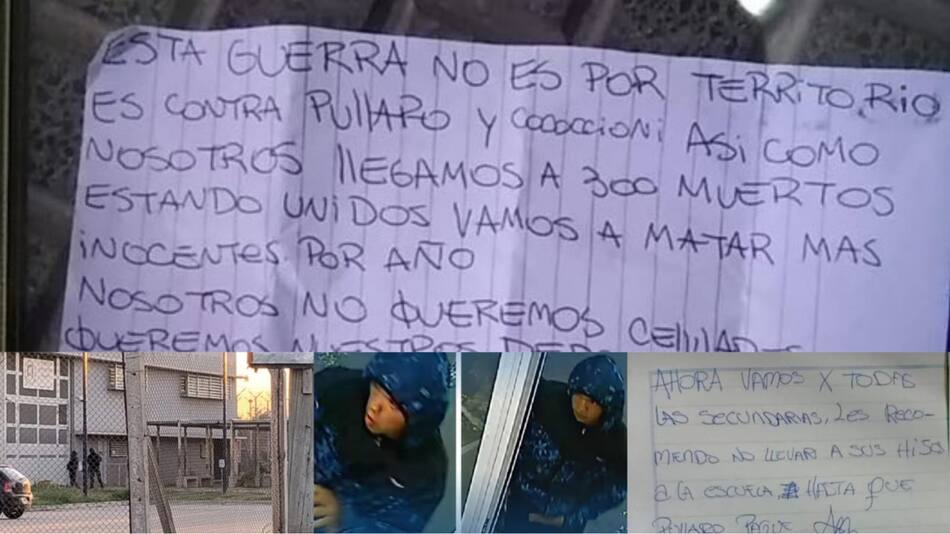 ESTA GUERRA NO ES POR TERRITORIO
ES CONTRA PUllARO Y COCOCCIONi ASi COMO
NOSOTROS llEGAMOS A 300 MUERTOS
ESTANDO UNiDOS VAMOS A MATAR MAS
iNOCENTES POR AÑO
NOSOTROS NO QUEREMOS CElUlARES
QUEREMOS NUESTROS
AHORA VAMOS X TODAS
LAS SECUNDARIAS, LES RECO-
MIENDO NO LLEVAR A SUS HISO
a LA ESCUELA HASTA QUE
PULLARO PAGUE